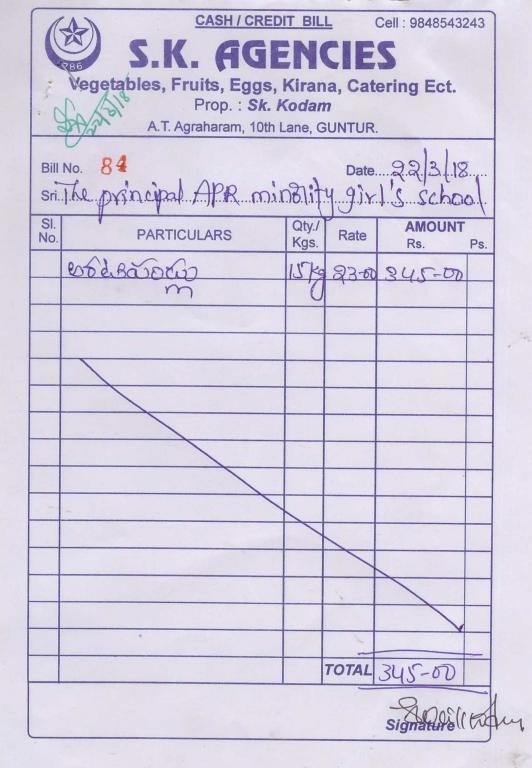 CASH / CREDIT BILL
Cell : 9848543243
786
S.K. AGENCIES
Vegetables, Fruits, Eggs, Kirana, Catering Ect.
Prop. : Sk. Kodam
A.T. Agraharam, 10th Lane, GUNTUR.
22/3/18
Bill No. 84
Date 22/3/18
Sri. The principal APR minority girl's school
Sl. No. PARTICULARS Qty./ Kgs. Rate AMOUNT Rs. Ps.
15kg 23-00 345-00
TOTAL 345-00
Signature